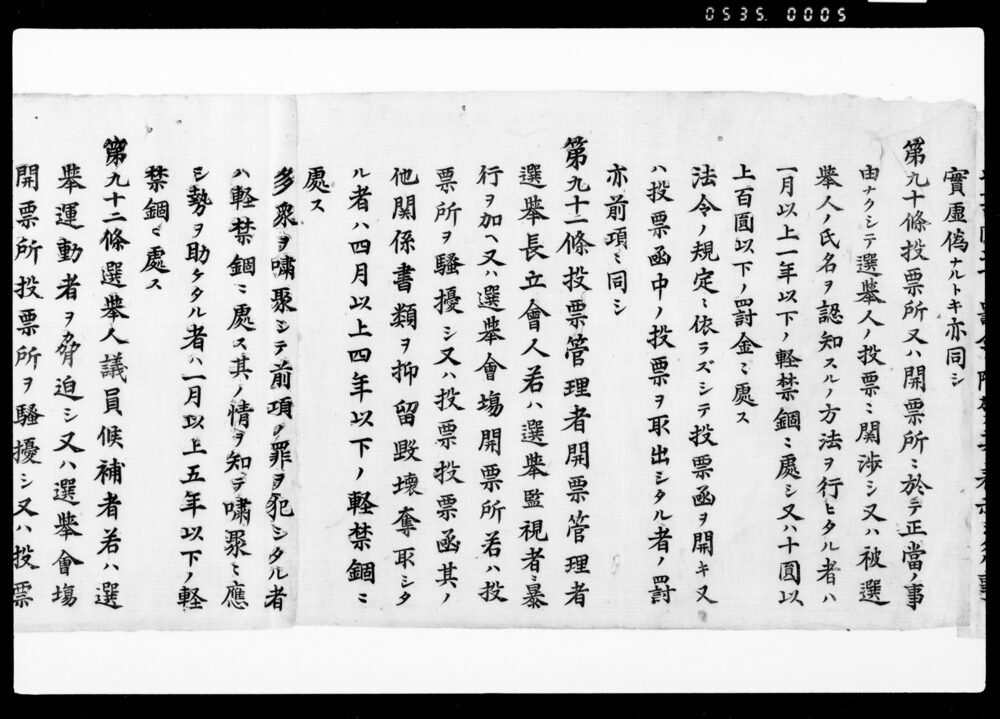 0535. 0005
實虛偽ナルトキ亦同シ
第九十條投票所又ハ開票所ニ於テ正當ノ事
由ナクシテ選擧人ノ投票ニ関渉シ又ハ被選
擧人ノ氏名ヲ認知スルノ方法ヲ行ヒタル者ハ
一月以上一年以下ノ軽禁錮ニ處シ又ハ十圓以
上百圓以下ノ罰金ニ處ス
法令ノ規定ニ依ラズシテ投票函ヲ開キ又
ハ投票函中ノ投票ヲ取出シタル者ノ罰
亦前項ニ同シ
第九十一條投票管理者開票管理者
選擧長立會人若ハ選擧監視者ニ暴
行ヲ加ヘ又ハ選擧會塲開票所若ハ投
票所ヲ騒擾シ又ハ投票投票函其ノ
他関係書類ヲ抑留毀壊奪取シタ
ル者ハ四月以上四年以下ノ軽禁錮ニ
處ス
多衆ヲ嘯聚シテ前項ノ罪ヲ犯シタル者
ハ軽禁錮ニ處ス其ノ情ヲ知テ嘯聚ニ應
シ勢ヲ助ケタル者ハ一月以上五年以下ノ軽
禁錮ニ處ス
第九十二條選擧人議員候補者若ハ選
擧運動者ヲ脅迫シ又ハ選擧會塲
開票所投票所ヲ騒擾シ又ハ投票